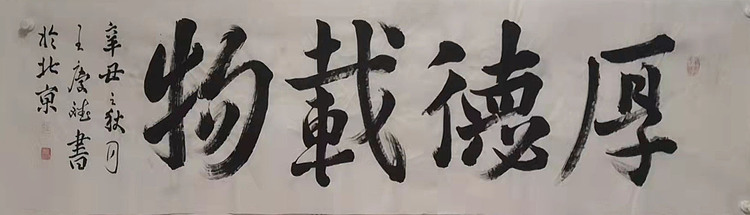 厚德載物
辛丑之秋月
王慶斌書
於北京